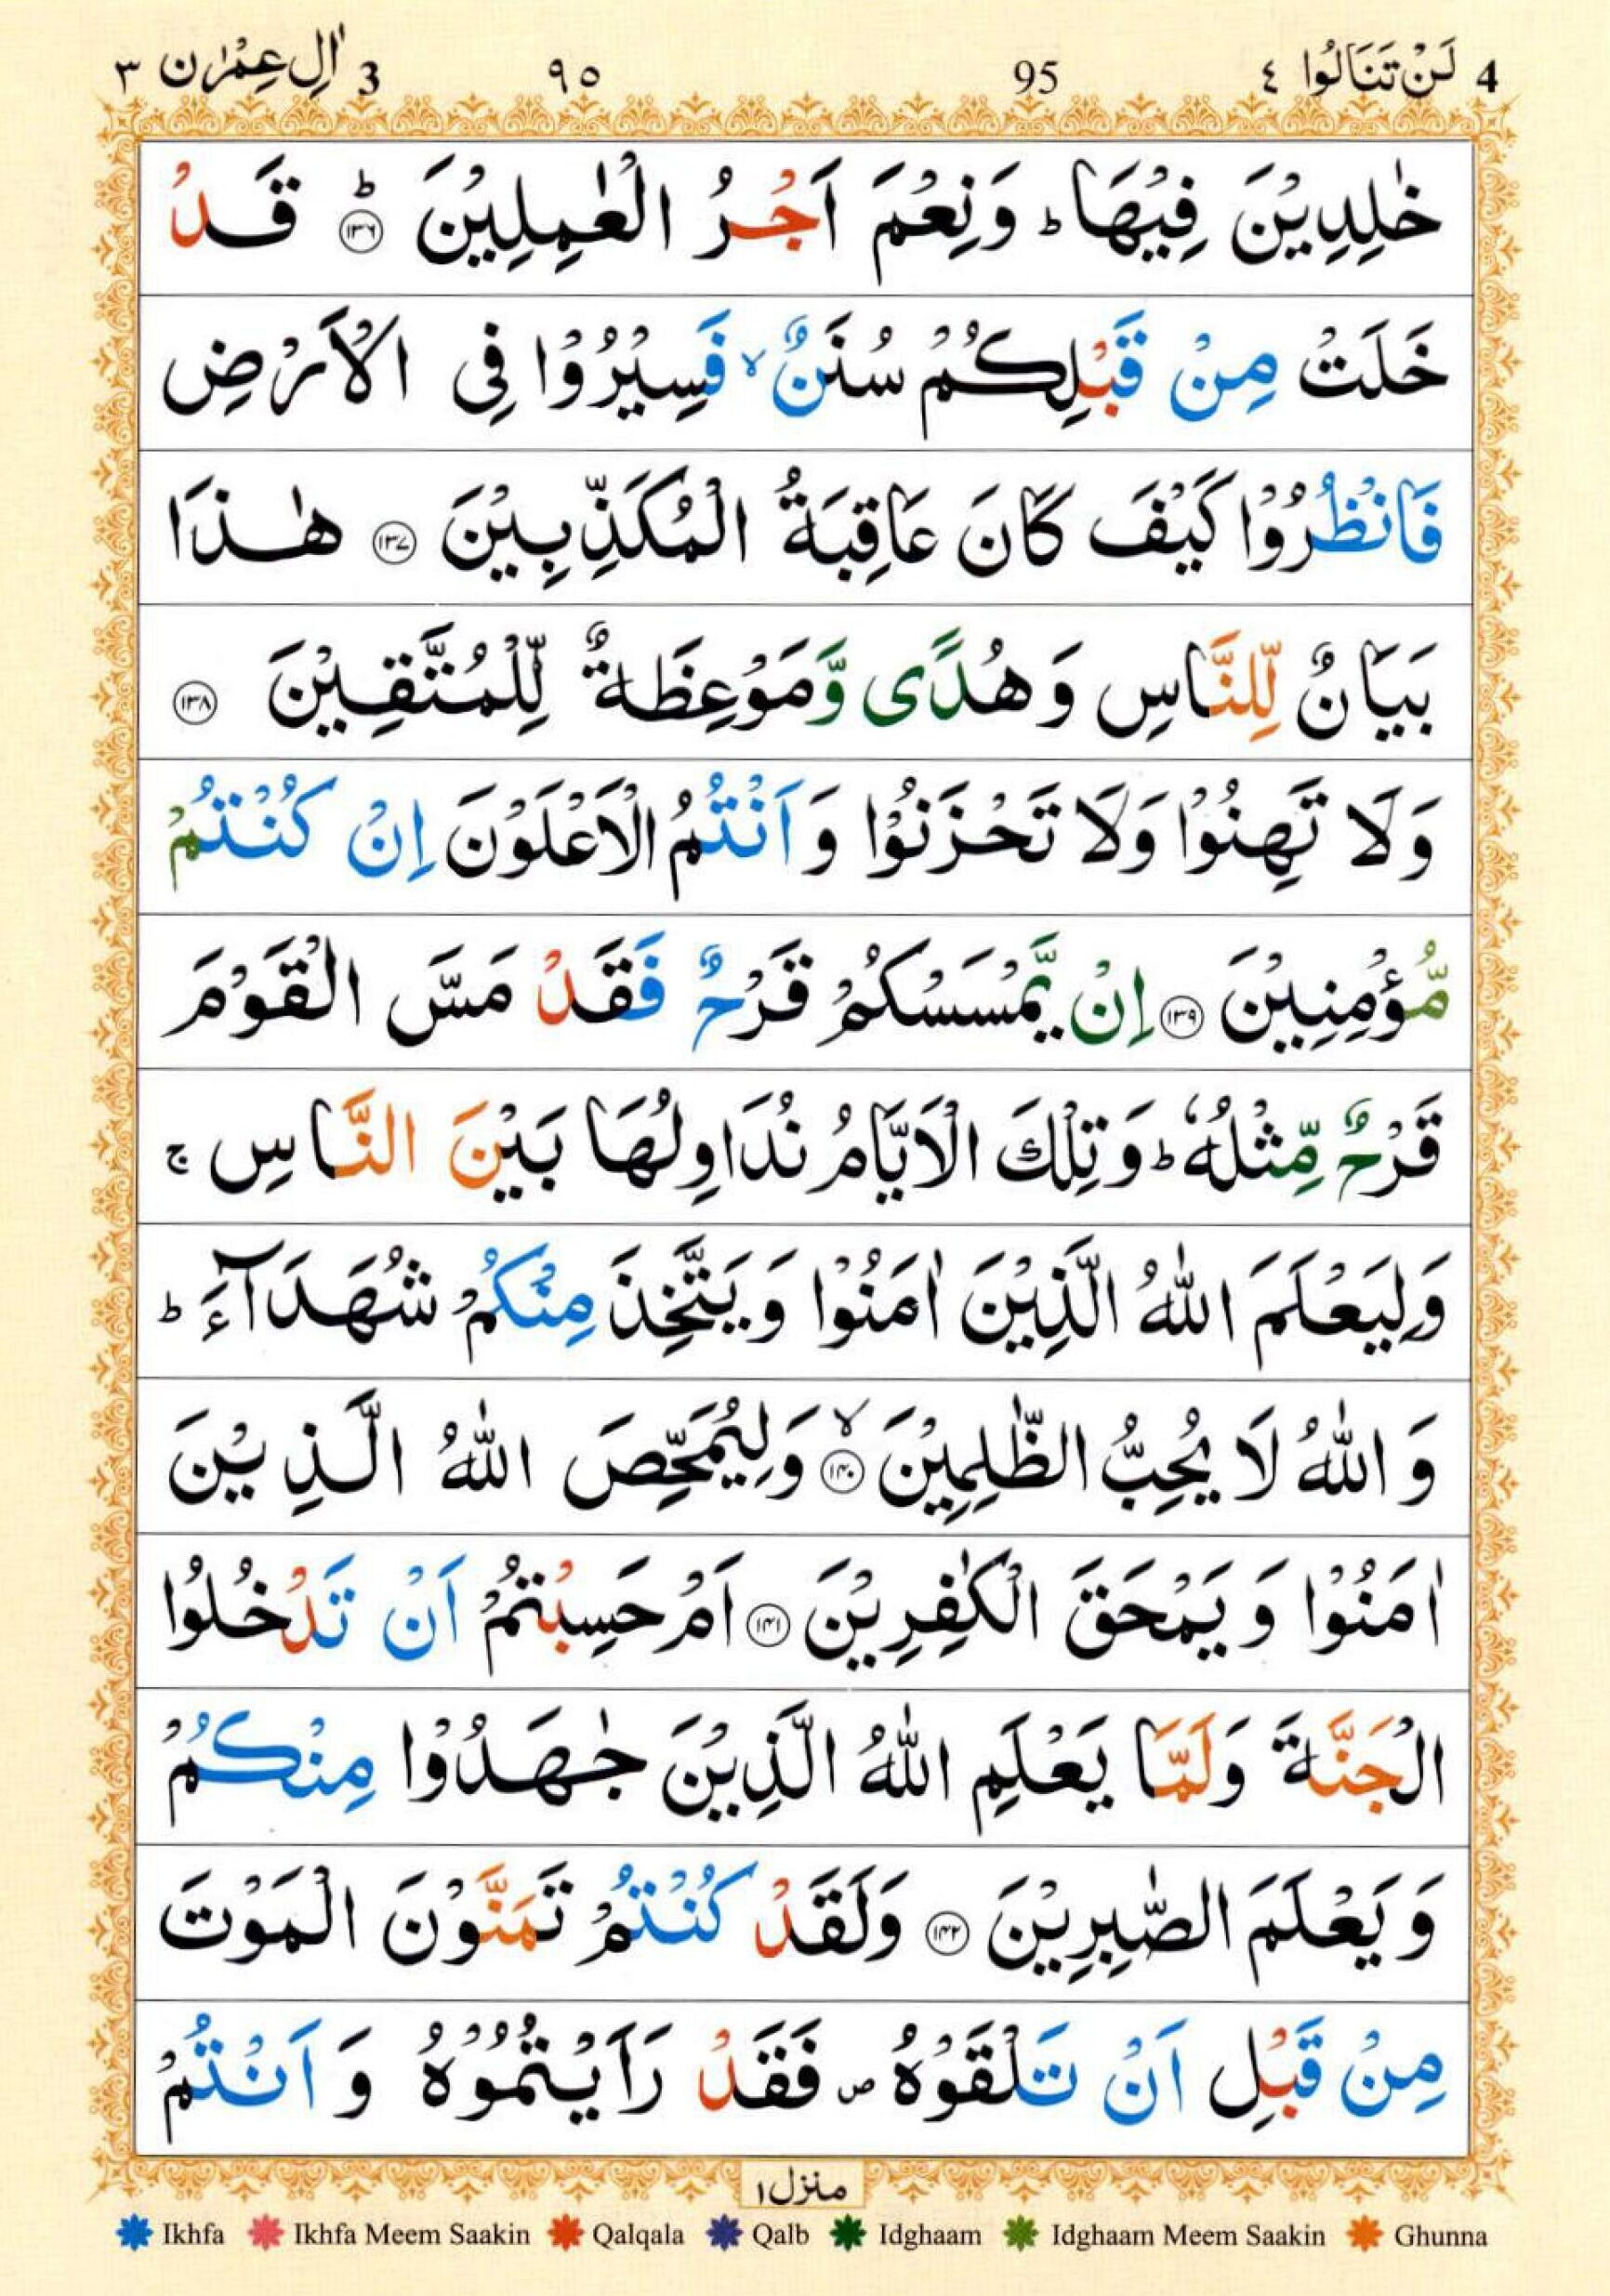 4 لَنْ تَنَالُوا ٤ 95 ٩٥ 3 اٰلِ عِمْرٰن ٣
خٰلِدِيْنَ فِيْهَا ؕ وَنِعْمَ اَجْرُ الْعٰمِلِيْنَ ؕ ﴿۱۳۶﴾ قَدْ
خَلَتْ مِنْ قَبْلِكُمْ سُنَنٌ ۙ فَسِيْرُوْا فِي الْاَرْضِ
فَانْظُرُوْا كَيْفَ كَانَ عَاقِبَةُ الْمُكَذِّبِيْنَ ﴿۱۳۷﴾ هٰذَا
بَيَانٌ لِّلنَّاسِ وَهُدًى وَّمَوْعِظَةٌ لِّلْمُتَّقِيْنَ ﴿۱۳۸﴾
وَلَا تَهِنُوْا وَلَا تَحْزَنُوْا وَاَنْتُمُ الْاَعْلَوْنَ اِنْ كُنْتُمْ
مُّؤْمِنِيْنَ ﴿۱۳۹﴾ اِنْ يَّمْسَسْكُمْ قَرْحٌ فَقَدْ مَسَّ الْقَوْمَ
قَرْحٌ مِّثْلُهٗ ؕ وَتِلْكَ الْاَيَّامُ نُدَاوِلُهَا بَيْنَ النَّاسِ ۚ
وَلِيَعْلَمَ اللّٰهُ الَّذِيْنَ اٰمَنُوْا وَيَتَّخِذَ مِنْكُمْ شُهَدَآءَ ؕ
وَاللّٰهُ لَا يُحِبُّ الظّٰلِمِيْنَ ۙ ﴿۱۴۰﴾ وَلِيُمَحِّصَ اللّٰهُ الَّذِيْنَ
اٰمَنُوْا وَيَمْحَقَ الْكٰفِرِيْنَ ﴿۱۴۱﴾ اَمْ حَسِبْتُمْ اَنْ تَدْخُلُوا
الْجَنَّةَ وَلَمَّا يَعْلَمِ اللّٰهُ الَّذِيْنَ جٰهَدُوْا مِنْكُمْ
وَيَعْلَمَ الصّٰبِرِيْنَ ﴿۱۴۲﴾ وَلَقَدْ كُنْتُمْ تَمَنَّوْنَ الْمَوْتَ
مِنْ قَبْلِ اَنْ تَلْقَوْهُ ۪ فَقَدْ رَاَيْتُمُوْهُ وَاَنْتُمْ
منزل ۱
Ikhfa Ikhfa Meem Saakin Qalqala Qalb Idghaam Idghaam Meem Saakin Ghunna